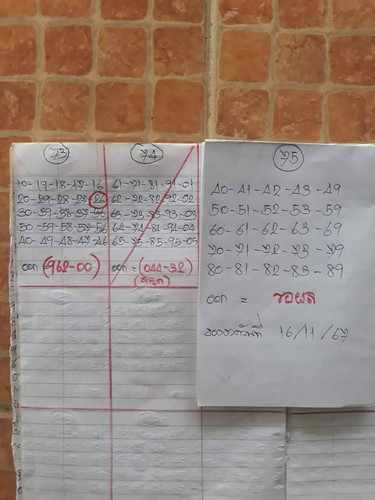 73
10-19-18-17-16
20-29-28-27-26
30-39-38-37-36
50-59-58-57-56
40-49-48-47-46
ออก (962-00)
74
61-71-81-91-01
62-72-82-92-02
63-73-83-93-03
64-74-84-94-04
65-75-85-95-05
ออก = (044-32)
75
40-41-42-43-49
50-51-52-53-59
60-61-62-63-69
70-71-72-73-79
80-81-82-83-89
ออก = รอผล
16/11/67